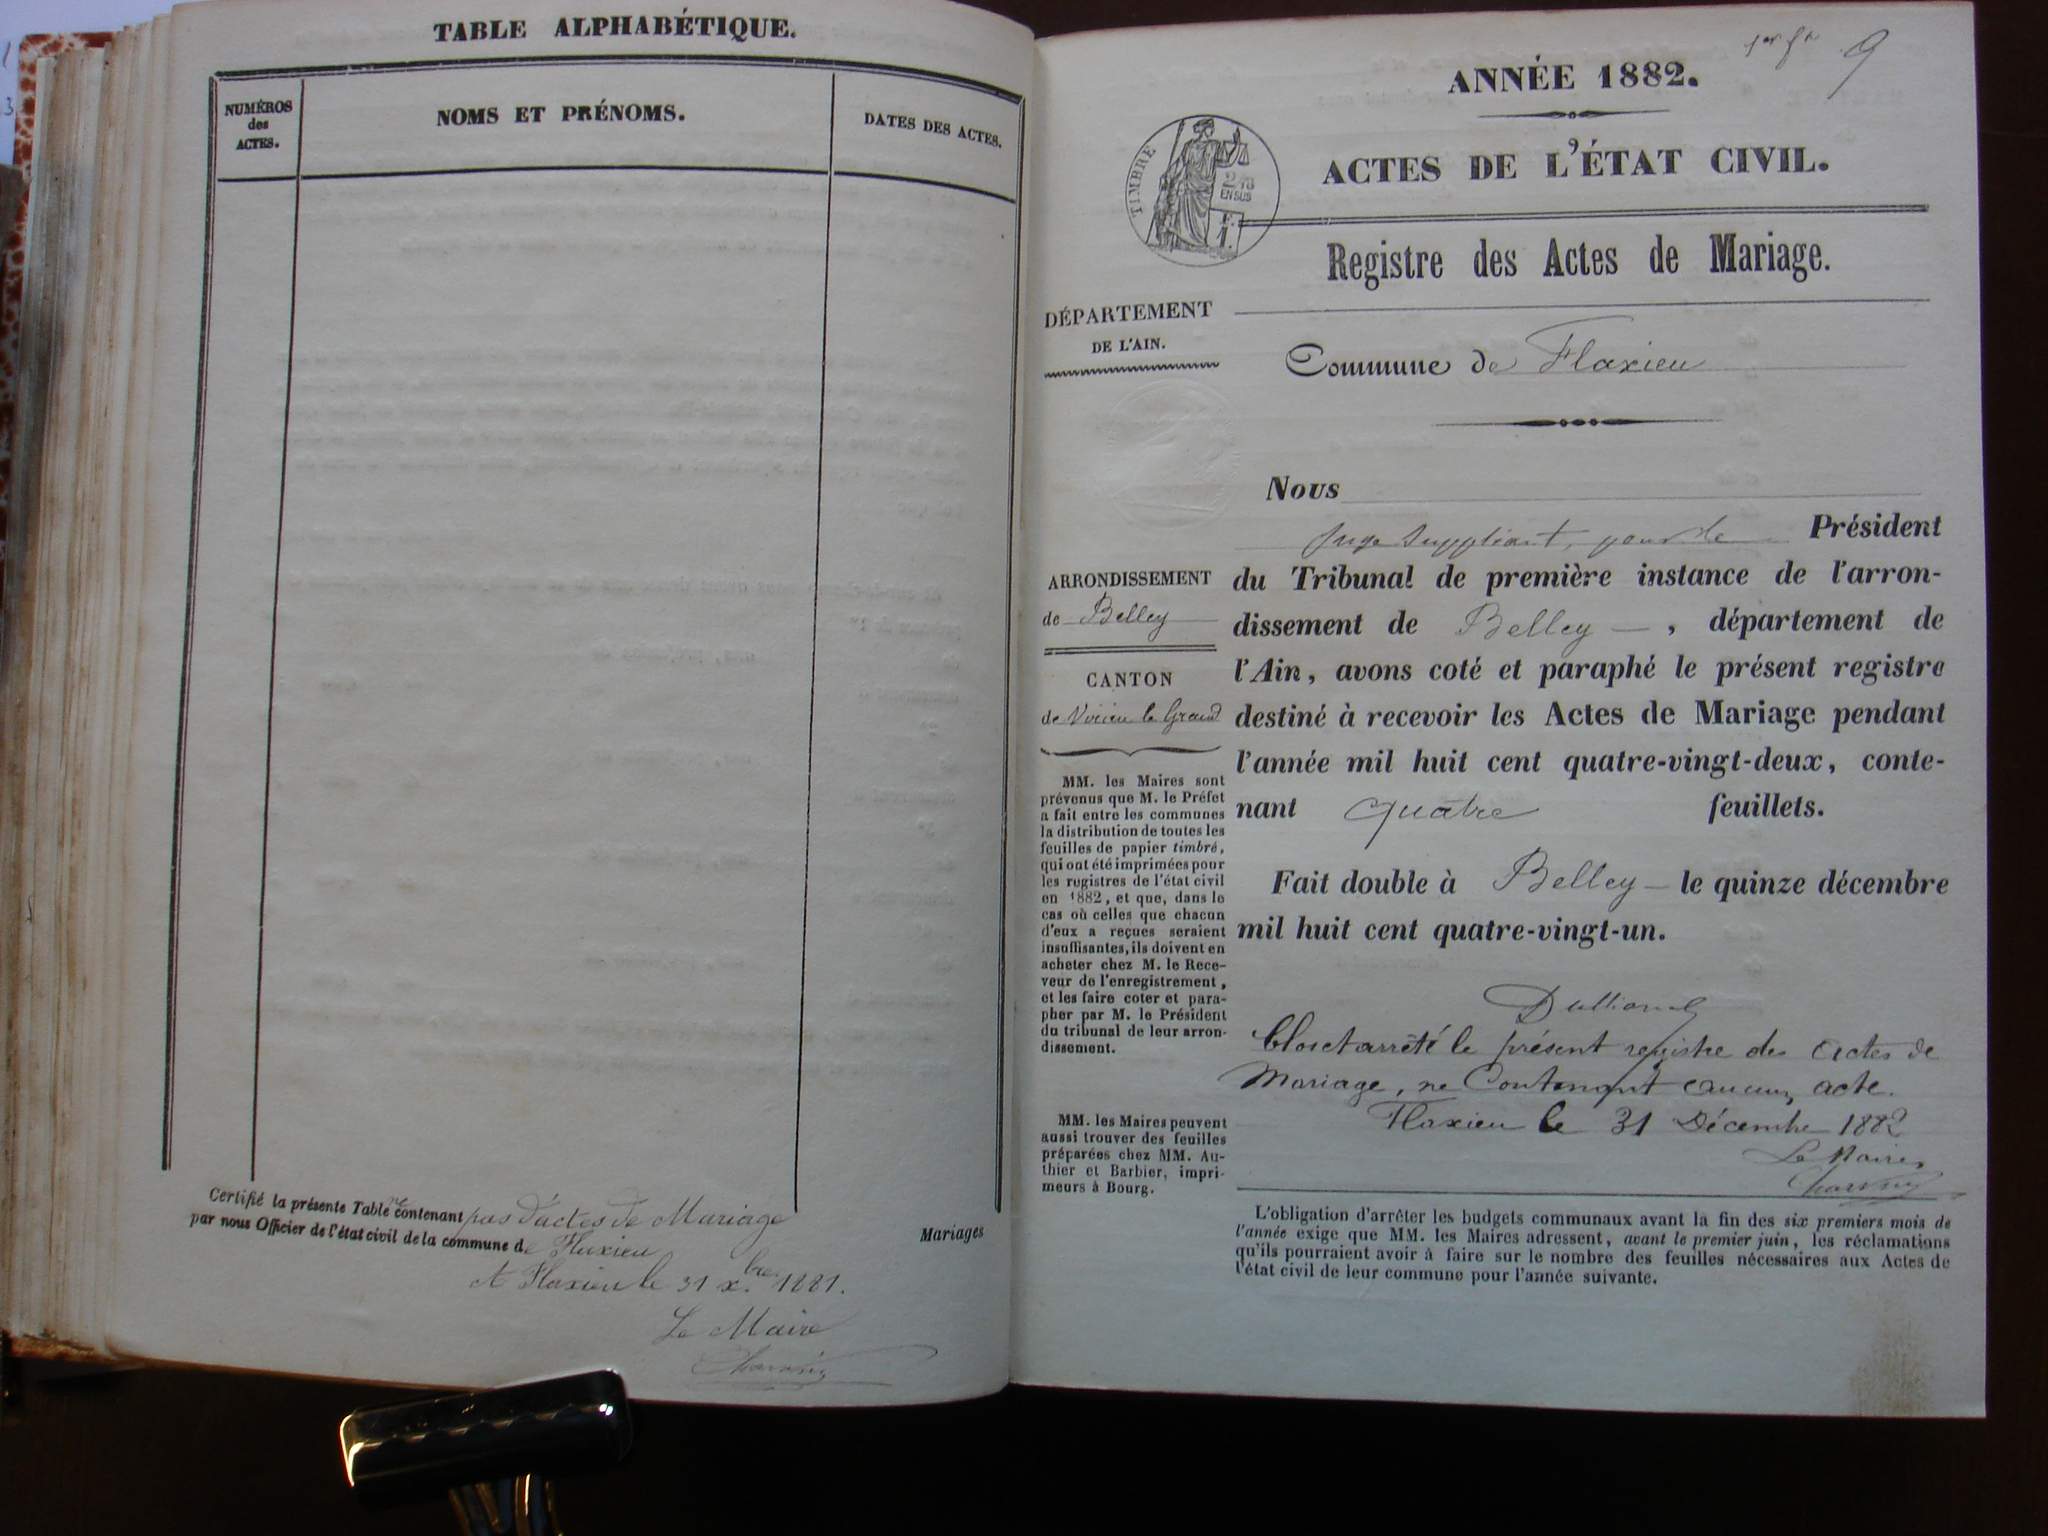 TABLE ALPHABÉTIQUE.
NUMÉROS
des
ACTES.
NOMS ET PRÉNOMS.
DATES DES ACTES.
Certifié la présente Table ne contenant pas d'actes de Mariage
par nous Officier de l'état civil de la commune de Flaxieu
A Flaxieu le 31 xbre 1881.
Le Maire
Mariages
1er ft 9
ANNÉE 1882.
ACTES DE L'ÉTAT CIVIL.
TIMBRE
2/10
EN SUS
F.
1.
Registre des Actes de Mariage.
DÉPARTEMENT
DE L'AIN.
Commune de Flaxieu
Nous
Juge Suppléant, pour le Président
du Tribunal de première instance de l'arron-
dissement de Belley, département de
l'Ain, avons coté et paraphé le présent registre
destiné à recevoir les Actes de Mariage pendant
l'année mil huit cent quatre-vingt-deux, conte-
nant quatre feuillets.
Fait double à Belley le quinze décembre
mil huit cent quatre-vingt-un.
Clos et arrêté le présent registre des actes de
Mariage, ne Contenant aucun acte.
Flaxieu le 31 Décembre 1882
Le Maire,
ARRONDISSEMENT
de Belley
CANTON
de Virieu le Grand
MM. les Maires sont
prévenus que M. le Préfet
a fait entre les communes
la distribution de toutes les
feuilles de papier timbré,
qui ont été imprimées pour
les registres de l'état civil
en 1882, et que, dans le
cas où celles que chacun
d'eux a reçues seraient
insuffisantes, ils doivent en
acheter chez M. le Rece-
veur de l'enregistrement,
et les faire coter et para-
pher par M. le Président
du tribunal de leur arron-
dissement.
MM. les Maires peuvent
aussi trouver des feuilles
préparées chez MM. Au-
thier et Barbier, impri-
meurs à Bourg.
L'obligation d'arrêter les budgets communaux avant la fin des six premiers mois de
l'année exige que MM. les Maires adressent, avant le premier juin, les réclamations
qu'ils pourraient avoir à faire sur le nombre des feuilles nécessaires aux Actes de
l'état civil de leur commune pour l'année suivante.